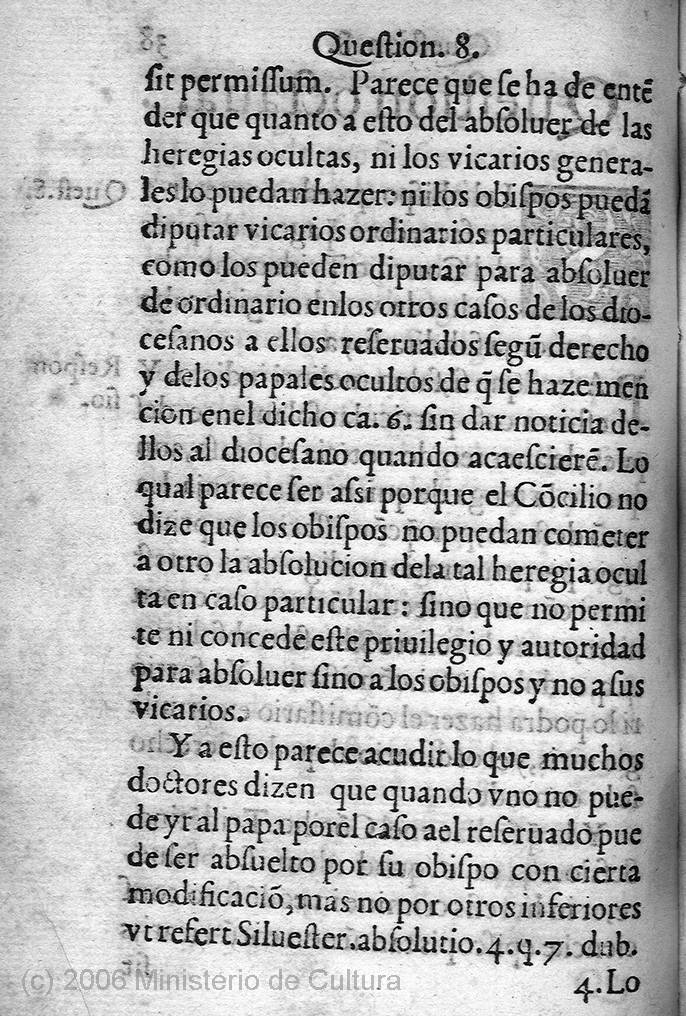 Question. 8.
sit permissum. Parece que se ha de entē
der que quanto a esto del absoluer de las
heregias ocultas, ni los vicarios genera-
les lo puedan hazer: ni los obispos puedā
diputar vicarios ordinarios particulares,
como los pueden diputar para absoluer
de ordinario enlos otros casos de los dio-
cesanos a ellos reseruados segū derecho
y delos papales ocultos de q̃ se haze men
cion enel dicho ca. 6. sin dar noticia de-
llos al diocesano quando acaescierē. Lo
qual parece ser assi porque el Cōcilio no
dize que los obispos no puedan cometer
a otro la absolucion dela tal heregia ocul
ta en caso particular: sino que no permi
te ni concede este priuilegio y autoridad
para absoluer sino a los obispos y no a sus
vicarios.
Y a esto parece acudir lo que muchos
doctores dizen que quando vno no pue-
de yr al papa porel caso a el reseruado pue
de ser absuelto por su obispo con cierta
modificaciō, mas no por otros inferiores
vt refert Siluester. absolutio. 4. q. 7. dub.
4. Lo
(c) 2006 Ministerio de Cultura